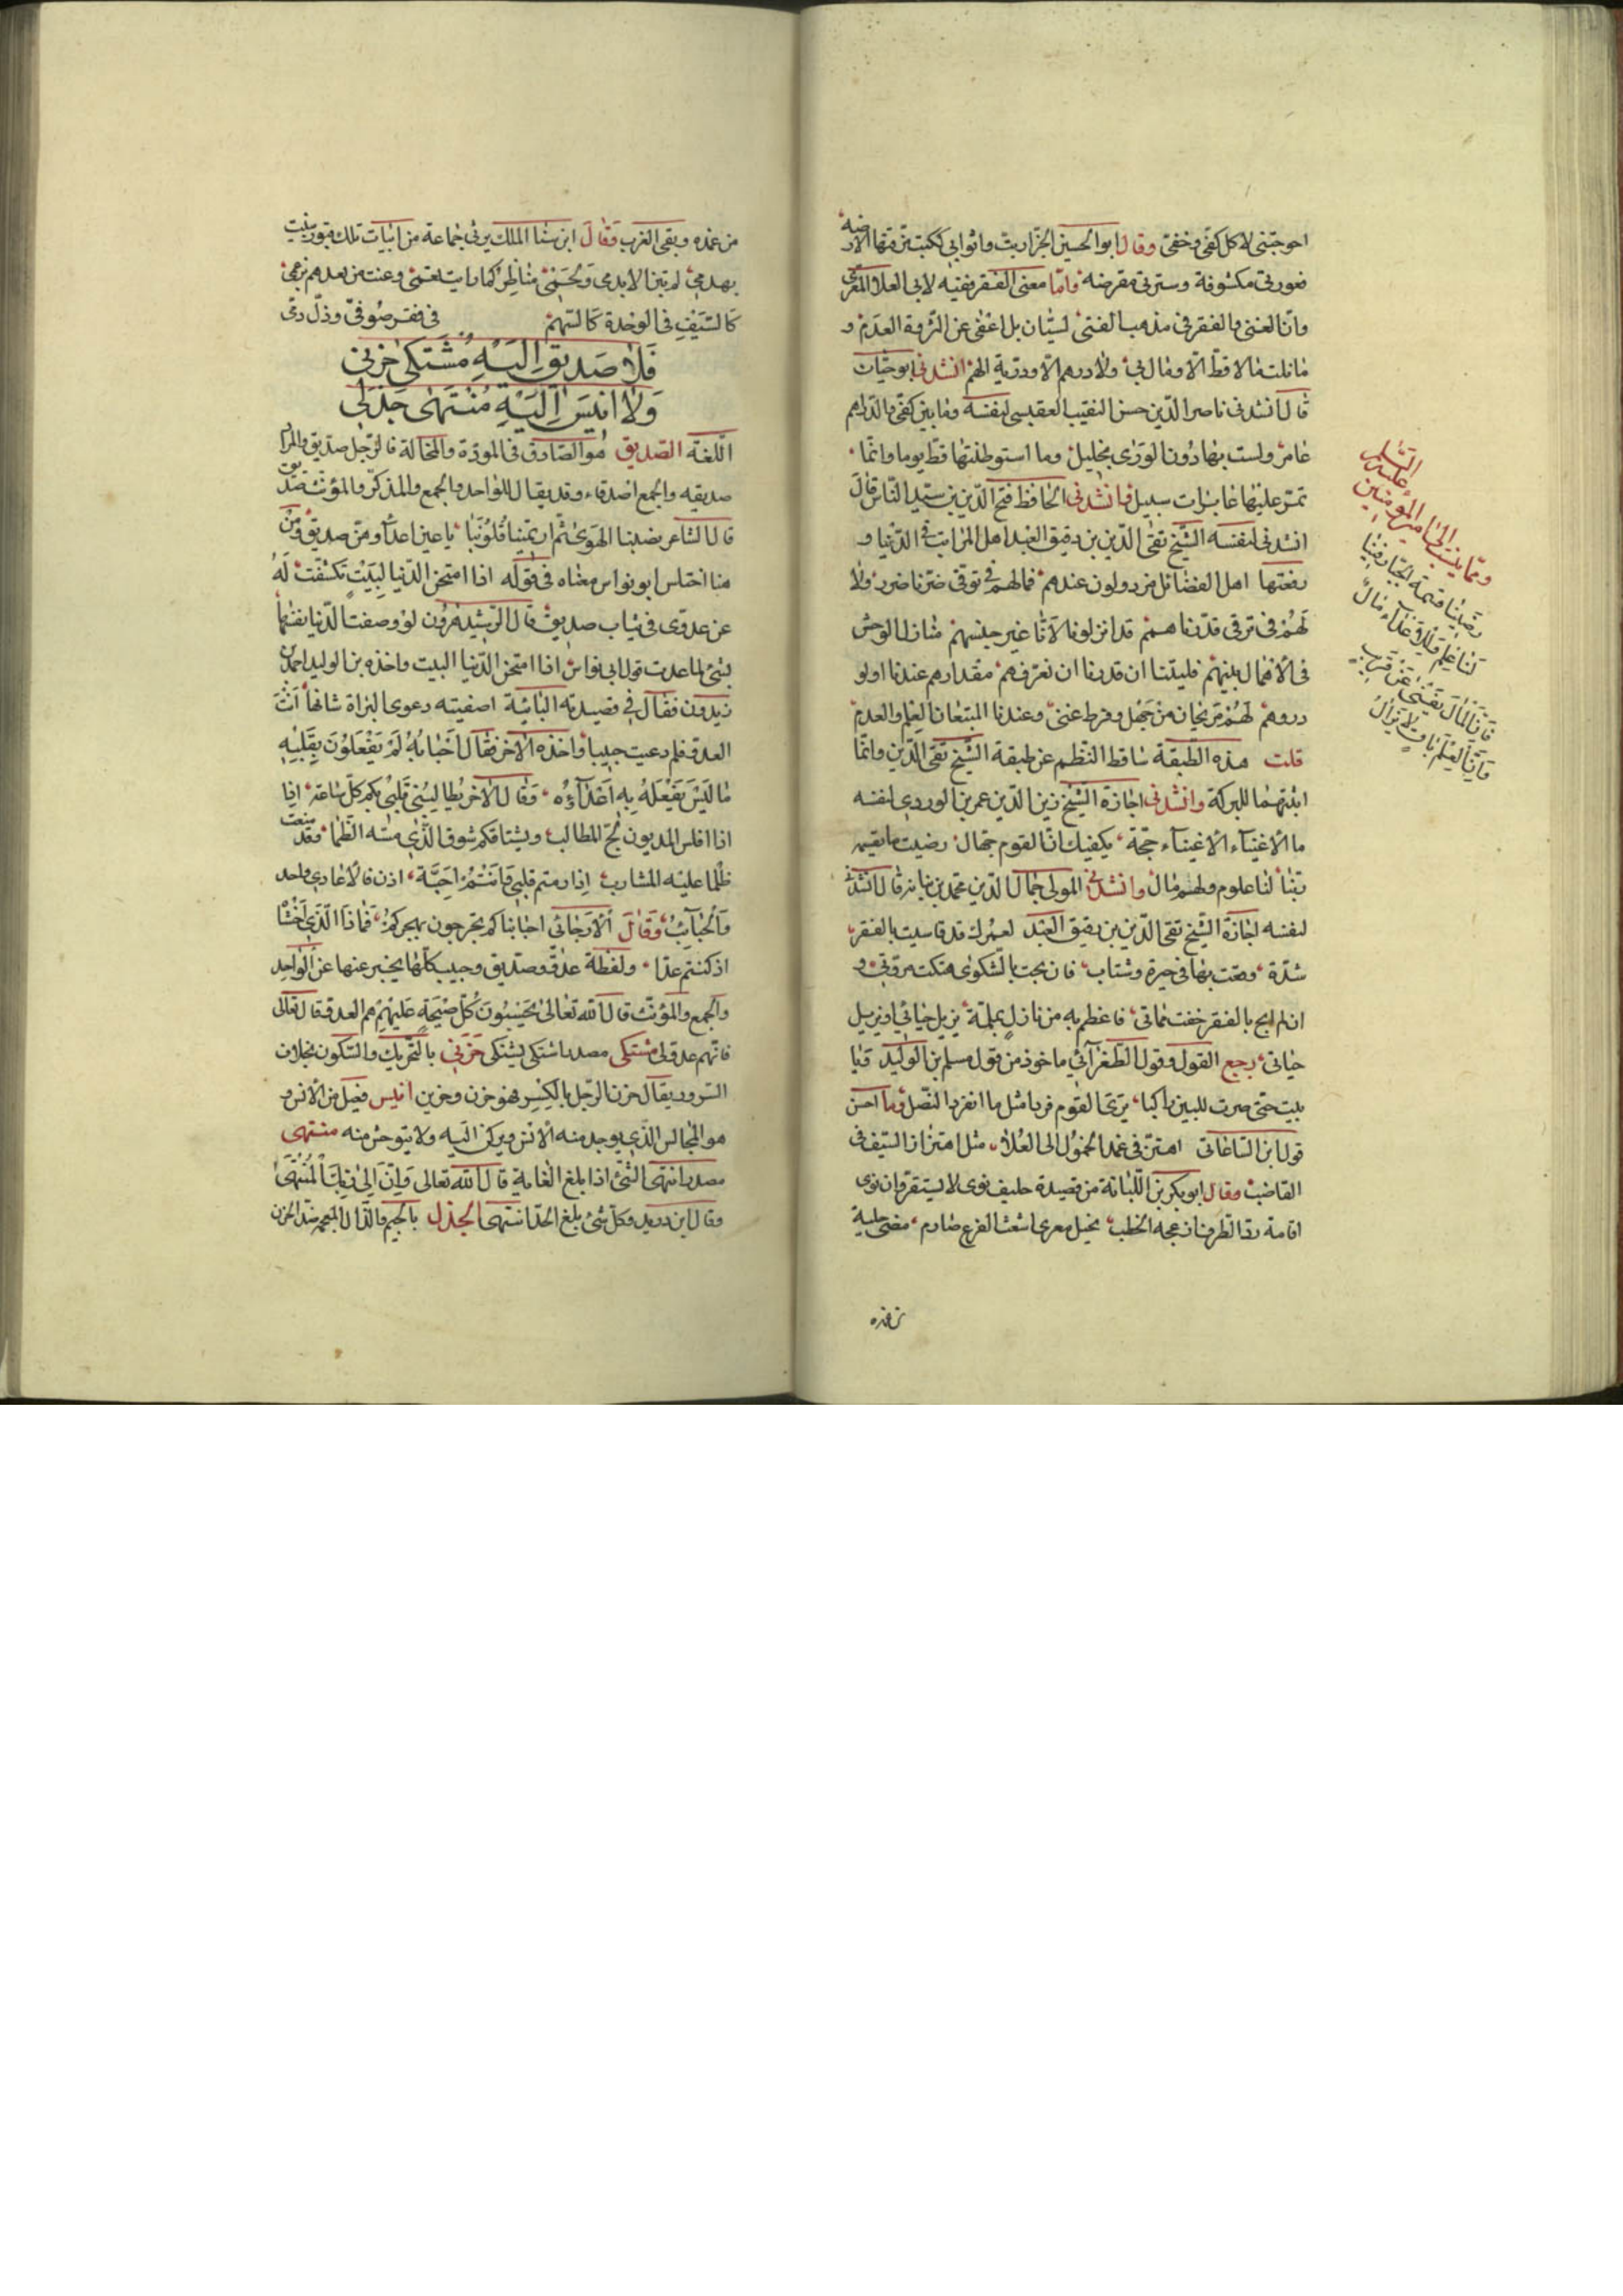 احوجتنى لا كل كفى وخفى وقال ابو الحسين الجزار بت واثوابى ككتبتى رقتها الارضه
فعورتى مكشوفة وسترتى مقرضه واما معنى الفقر ففيه لابى العلا المعرى
وان الغنى والفقر فى مذهب الفتى لسيان بل اعفى عن الثروة العدم و
ما نلت مالا قط الا ومال بى ولا درهم الا ودر به الهم انشدنى ابو حيان
قال انشدنى ناصر الدين حسن النقيب العقيسى لنفسه وما بين كفى والدراهم
عامر ولست بها دون الورى بخليل وما استوطنتها قط يوما وانما
تمر عليها عابرات سبيل وانشدنى الحافظ فتح الدين بن سيد الناس قال
انشدنى لنفسه الشيخ تقى الدين بن دقيق العيد اهل المراتب فى الدنيا و
رفعتها اهل الفضائل مرذولون عندهم فما لهم فى توقى ضرنا ضرر ولا
لهم فى ترقى قدرنا همم قد انزلونا لانا غير جنسهم منازل الوحش
فى الاهمال بينهم فليتنا ان قدرنا ان نعرفهم مقدارهم عندنا او لو
دروهم لهم مريحان من جهل وفرط غنى وعندنا المتعبان العلم والعدم
قلت هذه الطبقة ساقط النظم عن طبقة الشيخ تقى الدين وانما
اثبتهما للبركة وانشدنى اجازة الشيخ زين الدين عمر بن الوردى لنفسه
ما الاغنياء الاغبياء حجة يكفيك ان القوم جهال رضيت ما يقسم
ربنا لنا علوم ولهم مال وانشدنى المولى جمال الدين محمد بن نباته قال انشدنى
لنفسه اجازة الشيخ تقى الدين بن دقيق العيد لعمرك قد قاسيت بالفقر
شدة وقعت بها فى حيرة وشتات فان بحت بالشكوى هتكت مروتى و
ان لم ابح بالفقر خفت مماتى فاعظم به من نازل بملمة يزيل حيائى او يزيل
حياتى رجع القول وقول الطغرائى ماخوذ من قول مسلم بن الوليد
بليت حتى صرت للبين راكبا يرى القوم فردا مثل ما انفرد النصل وما احسن
قول ابن الساعاتى اهتز فى غمد الخمول الى العلا مثل اهتزاز السيف فى
القاضب وقال ابو بكر بن اللبانة من قصيدة حليف نوى لا يستقر وان نوى
اقامة رد الطرف ان عجه الخطب نحيل معرى اشعث الفرع صارم مضى حلية
من غمده
ومما ينسب الى امير المؤمنين عليه السلم
رضينا قسمة الجبار فينا
لنا علم وللاعداء مال
فان المال يفنى عن قريب
وان العلم باق لا يزال
من غمده وبقى الغرب وقال ابن سنا الملك يرثى جماعة من ابيات تلك قبور بنيت
بهدمى لم تبن الا بدمى
كالسيف فى الوحدة كالسهم فى فقر صوفى وذل دمى
فلا صديق اليه مشتكى حزنى
ولا انيس اليه منتهى جذلى
اللغة الصديق هو الصادق فى المودة والمخالة فالرجل صديق والمراة
صديقه والجمع اصدقاء وقد يقال للواحد والجمع والمذكر والمؤنث صديق
قال الشاعر نصبنا الهوى ثم ارتمينا قلوبنا باعين اعداء وهن صديق ومن
هنا اختلس ابو نواس معناه فى قوله اذا امتحن الدنيا لبيب تكشفت له
عن عدو فى ثياب صديق قال الرشيد هرون لو وصفت الدنيا نفسها
بشئ لما عدت قول ابى نواس اذا امتحن الدنيا البيت واخذه بن الوليد احمد بن
زيدون فقال فى قصيدته البائية اصفيته دعوى البراة شانها انت
العدو فلم دعيت حبيبا واخذه الآخر فقال احبابه لم يفعلون بقلبه
ما ليس يفعله به اعداؤه وقال الآخر يطالبنى قلبى بكم كل ساعة اذا
اذا افلس المديون لج المطالب ويشتاقكم شوق الذى مسه الظما وقد منعت
ظلما عليه المشارب اذا رمتم قلبى فانتم احبة اذن فالاعادى واحد
والحبايب وقال الارجانى احبابنا كم تجرحون بهجركم فماذا الذى
اذ كنتم عدا ولفظة عدو وصديق وحبيب كلها يخبر عنها عن الواحد
والجمع والمؤنث قال الله تعالى يحسبون كل صيحة عليهم هم العدو قال تعالى
فانهم عدو لى مشتكى مصدر اشتكى يشتكى حزنى بالتحريك والسكون بخلاف
السرور يقال حزن الرجل بالكسر فهو حزن وحزين انيس فعيل من الانس و
هو المجالس الذى يوجد منه الانس ويركن اليه ولا يتوحش منه منتهى
مصدر انتهى الشئ اذا بلغ الغاية قال الله تعالى وان الى ربك المنتهى
وقال ابن دريد وكل شئ بلغ الحد انتهى الجذل بالجيم والذال المعجمه ضد الحزن